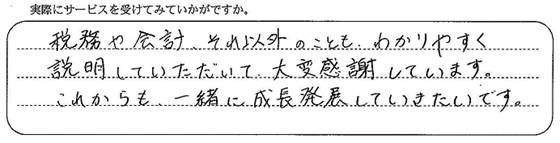 実際にサービスを受けてみていかがですか。
税務や会計、それ以外のことも、わかりやすく
説明していただいて、大変感謝しています。
これからも、一緒に成長発展していきたいです。